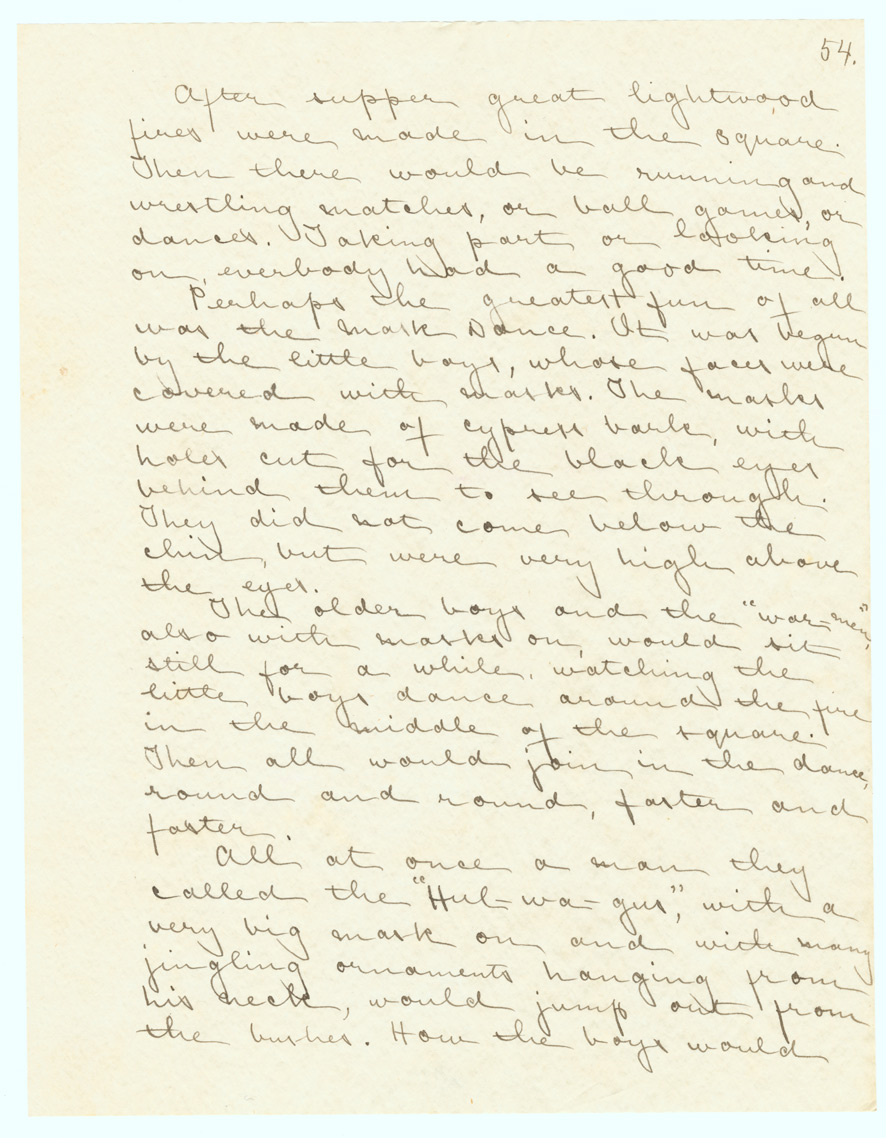 54.
After supper great lightwood
fires were made in the square.
Then there would be running and
wrestling matches, or ball games, or
dances. Taking part or looking
on, everbody had a good time.
Perhaps the greatest fun of all
was the Mask Dance. It was begun
by the little boys, whose faces were
covered with masks. The masks
were made of cypress bark, with
holes cut for the black eyes
behind them to see through.
They did not come below the
chin, but were very high above
the eyes.
The older boys and the "war-men",
also with masks on, would sit
still for a while, watching the
little boys dance around the fire
in the middle of the square.
Then all would join in the dance,
round and round, faster and
faster.
All at once a man they
called the "Hul-wa-gus", with a
very big mask on and with many
jingling ornaments hanging from
his neck, would jump out from
the bushes. How the boys would